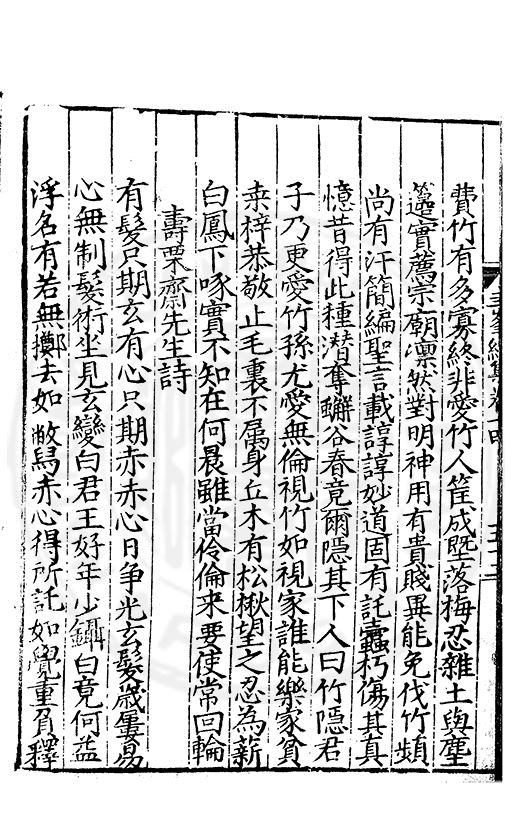 費竹有多寡終非愛竹人筐成墮落梅忍雜土與塵
籩實薦宗廟凛然對明神用有貴賤異能免伐竹頻
尚有汗簡編聖言載諄諄妙道固有託蠹朽傷其真
憶昔得此種潜奪嶰谷春竟爾隱其下人曰竹隱君
子乃更愛竹孫尤愛無倫視竹如視家誰能樂家貧
桒梓恭敬止毛裏不属身丘木有松楸望之忍為薪
白鳳下啄實不知在何晨雖當伶倫来要使常回輪
壽栗齋先生詩
有髮只期玄有心只期赤赤心日争光玄髮歲屢易
心無制髮術坐見玄變白君王好年少鑷白竟何益
浮名有若無擲去如敝舄赤心得所託如覺重負釋
卷四